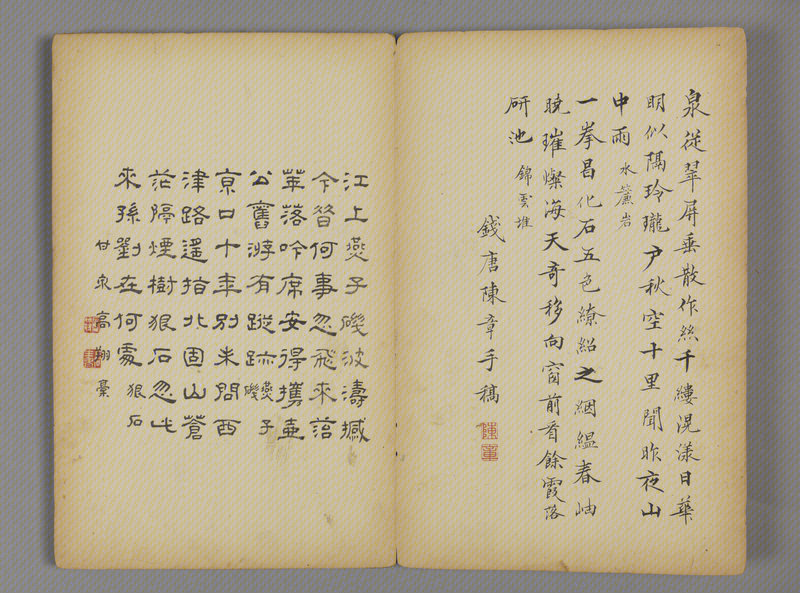 泉從翠屏垂散作絲千縷滉漾日華
明似隔玲瓏戶秋空十里聞昨夜山
中雨 水簾岩
一拳昌化石五色繚紹之絪縕春岫
曉璀燦海天奇移向窗前看餘霞落
研池 錦雲堆
錢唐陳章手稿
江上燕子磯波濤撼
今昔何事忽飛來落
華落吟席安得攜壺
公舊游有蹤跡 燕子磯
京口十年別未問西
津路遙指北固山蒼
茫隔煙樹狠石忽七
來孫劉在何處 狠石
甘泉高翔稾